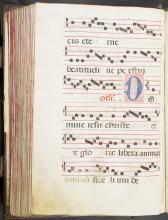 cis ete rne
beatitudi
Off. D
mine iesu christe
rex glo rie libera animas
omnium fide lium de